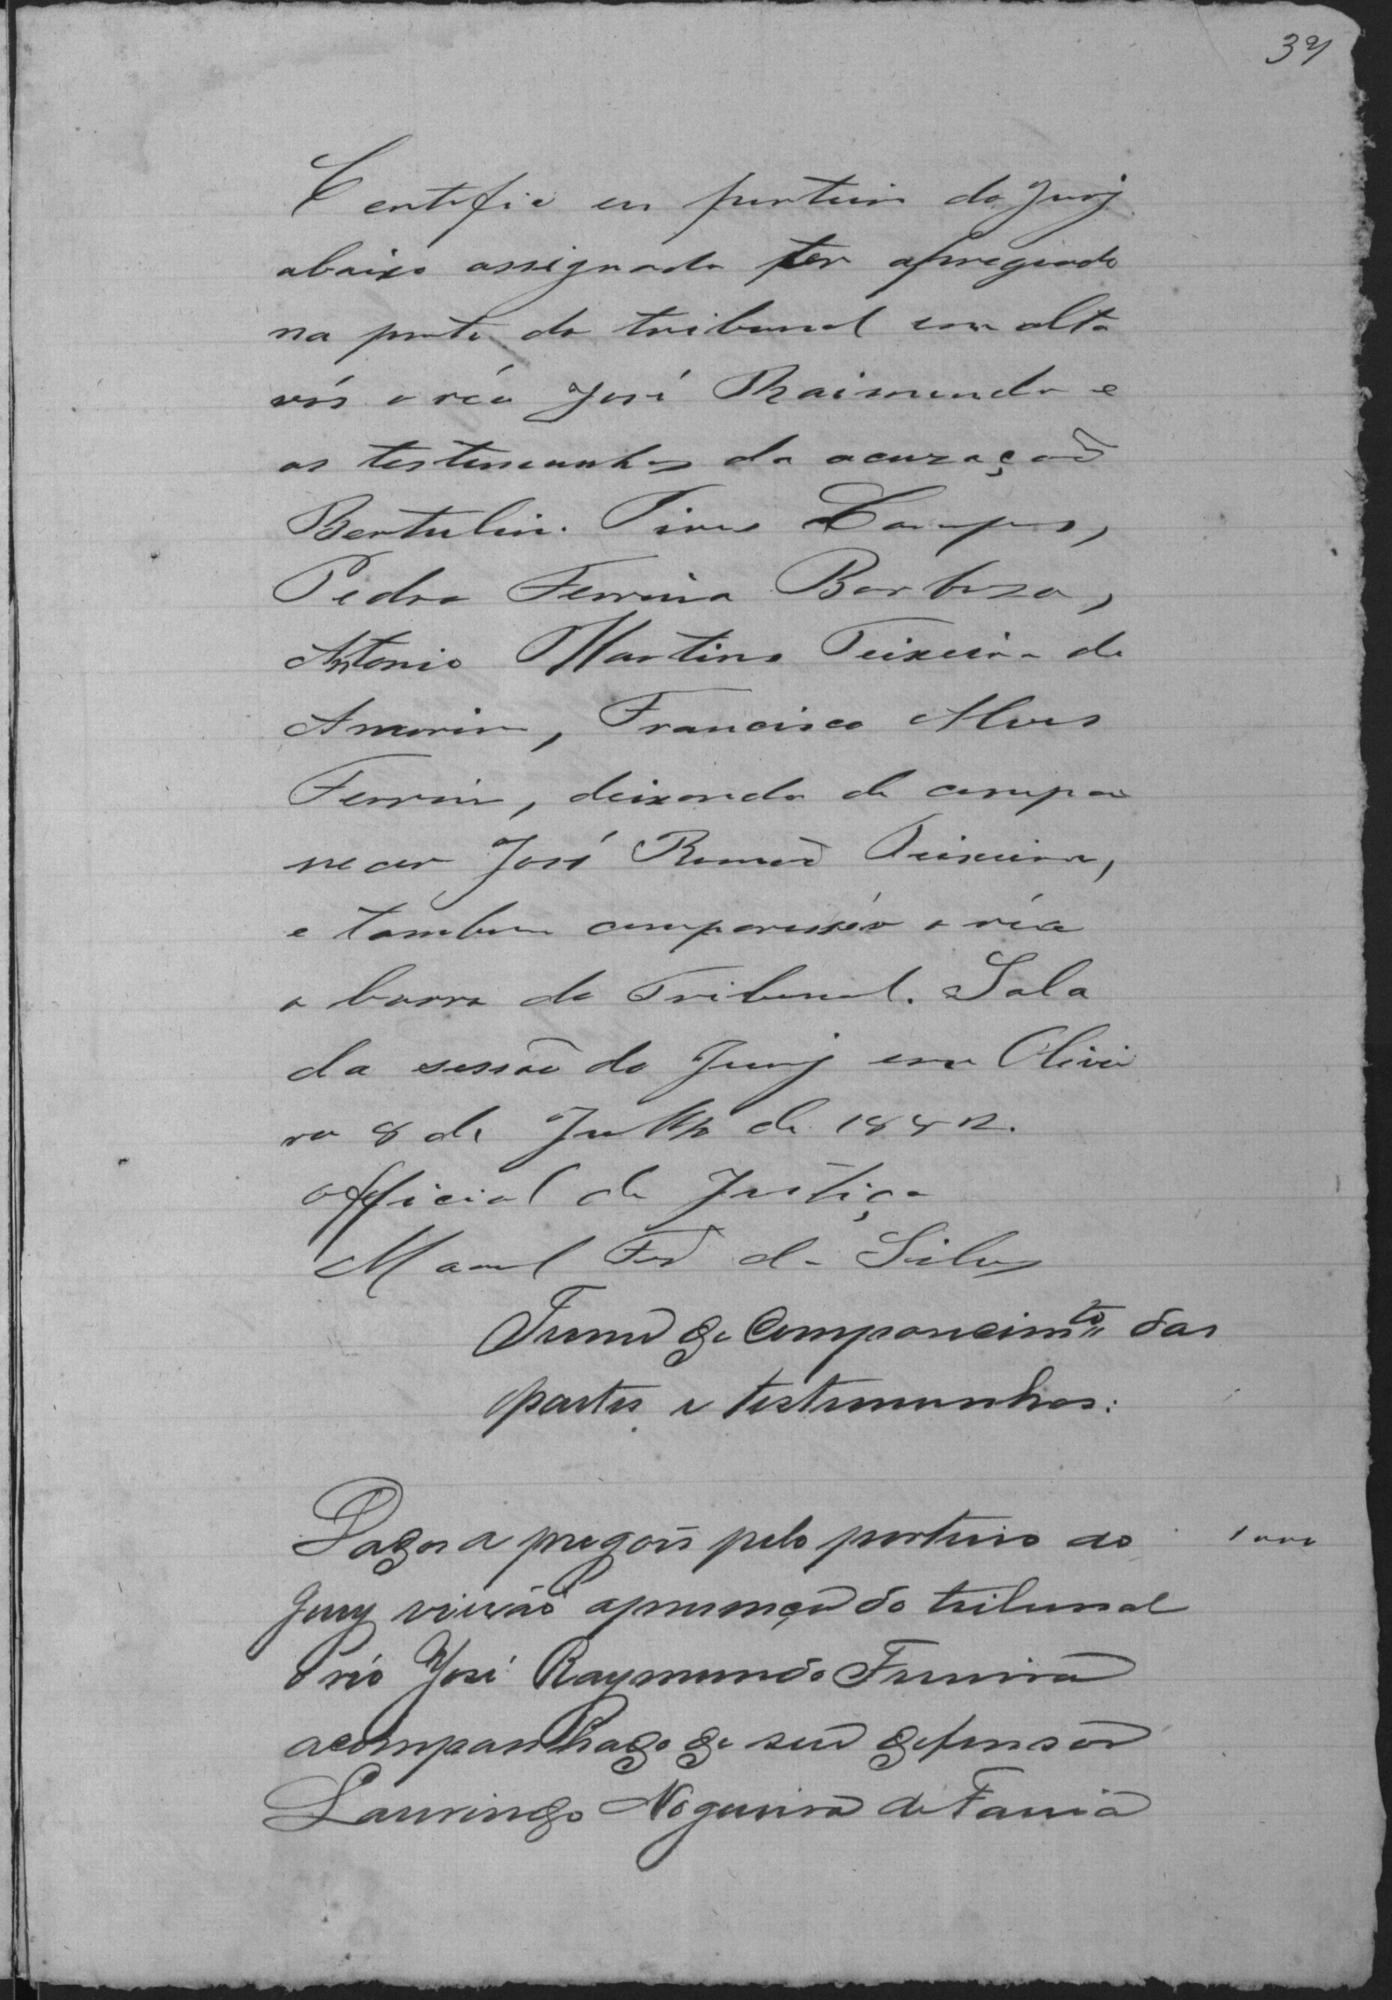 Certifico eu porteiro do Jury
abaixo assignado ter apregoado
na porta do tribunal em alta
vós o réo José Raimundo e
as testemunhas da acuzação
Bertulino Pires Campos,
Pedro Ferreira Barboza,
Antonio Martins Teixeira de
Amorim, Francisco Alves
Ferreira, deixando de compa
recer José Romão Teixeira,
e tambem comparesseo o réo
a barra do Tribunal. Sala
da sessão do Jury em Olivei
ra 8 de Julho de 1882.
Official de Justiça
Manoel Frd da Silva
Termo de Comparecimto das
partes e testemunhas:
Dados a pregões pelo porteiro do
Jury vierão a presença do tribunal
o réo José Raymundo Ferreira
acompanhado de seu defensor
Laurindo Nogueira de Faria